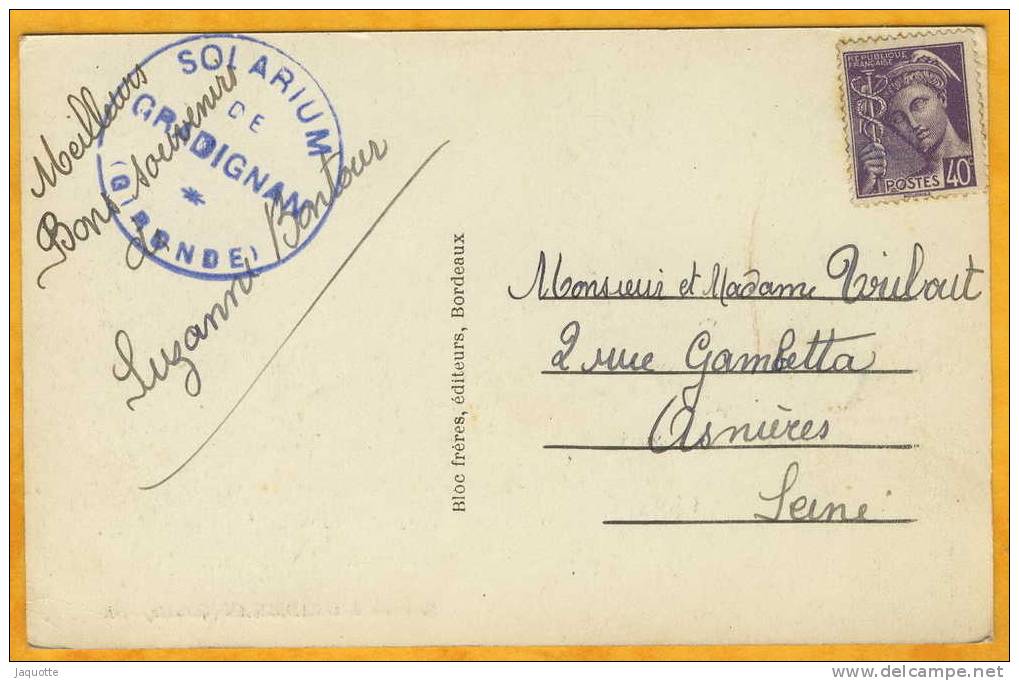 SOLARIUM
DE
GRADIGNAN
(GIRONDE)
Meilleurs
Bons souvenirs
Suzanne Bontour
REPUBLIQUE
FRANÇAISE
POSTES 40c
Bloc frères, éditeurs, Bordeaux
Monsieur et Madame
2 rue Gambetta
Asnières
Seine
jaquotte
www.delcampe.net